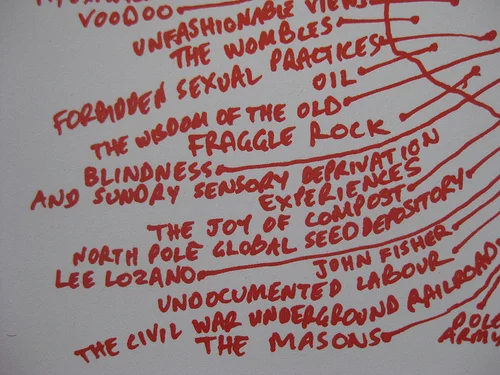 VOODOO
UNFASHIONABLE VIEWS
THE WOMBLES
FORBIDDEN SEXUAL PRACTICES
OIL
THE WISDOM OF THE OLD
FRAGGLE ROCK
BLINDNESS
AND SUNDRY SENSORY DEPRIVATION
EXPERIENCES
THE JOY OF COMPOST
NORTH POLE GLOBAL SEED DEPOSITORY
LEE LOZANO
JOHN FISHER
UNDOCUMENTED LABOUR
THE CIVIL WAR UNDERGROUND RAILROAD
THE MASONS
ARMY